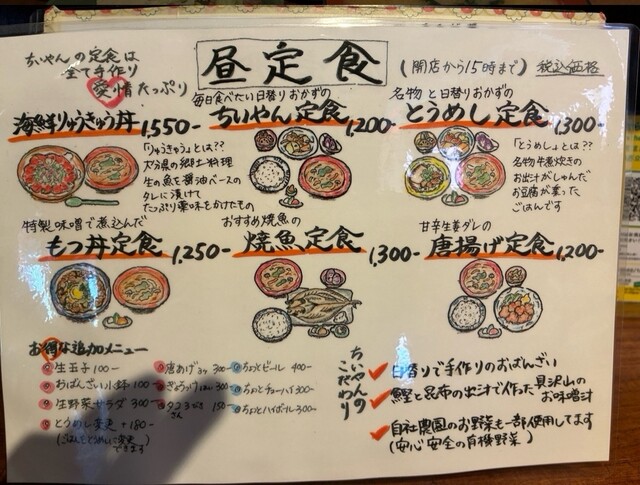 ちぃやんの定食は
全て手作り
愛情たっぷり
昼定食
(開店から15時まで) 税込価格
海鮮りゅうきゅう丼 1,550-
「りゅうきゅう」とは??
大分県の郷土料理
生の魚を醤油ベースの
タレに漬けて
たっぷり薬味をかけたもの
毎日食べたい日替りおかずの
ちいやん定食 1,200-
名物と日替りおかずの
とうめし定食 1,300-
「とうめし」とは??
名物牛煮炊きの
お出汁がしゅんだ
お豆腐が乗った
ごはんです
特製味噌で煮込んだ
もつ丼定食 1,250-
おすすめ焼魚の
焼魚定食 1,300-
甘辛生姜ダレの
唐揚げ定食 1,200-
お得な追加メニュー
生玉子 100-
おばんざい小鉢 100-
生野菜サラダ 300-
とうめし変更 +180-
(ごはんをとうめしに変更できます)
唐あげ 3ヶ 300-
300-
150-
ちょいとビール 400-
ちょいとチューハイ 300-
ちょいとハイボール 300-
ちいやんの
こだわり
日替りで手作りのおばんざい
鰹と昆布の出汁で作った具沢山の
お味噌汁
自社農園のお野菜も一部使用してます
(安心安全の有機野菜)